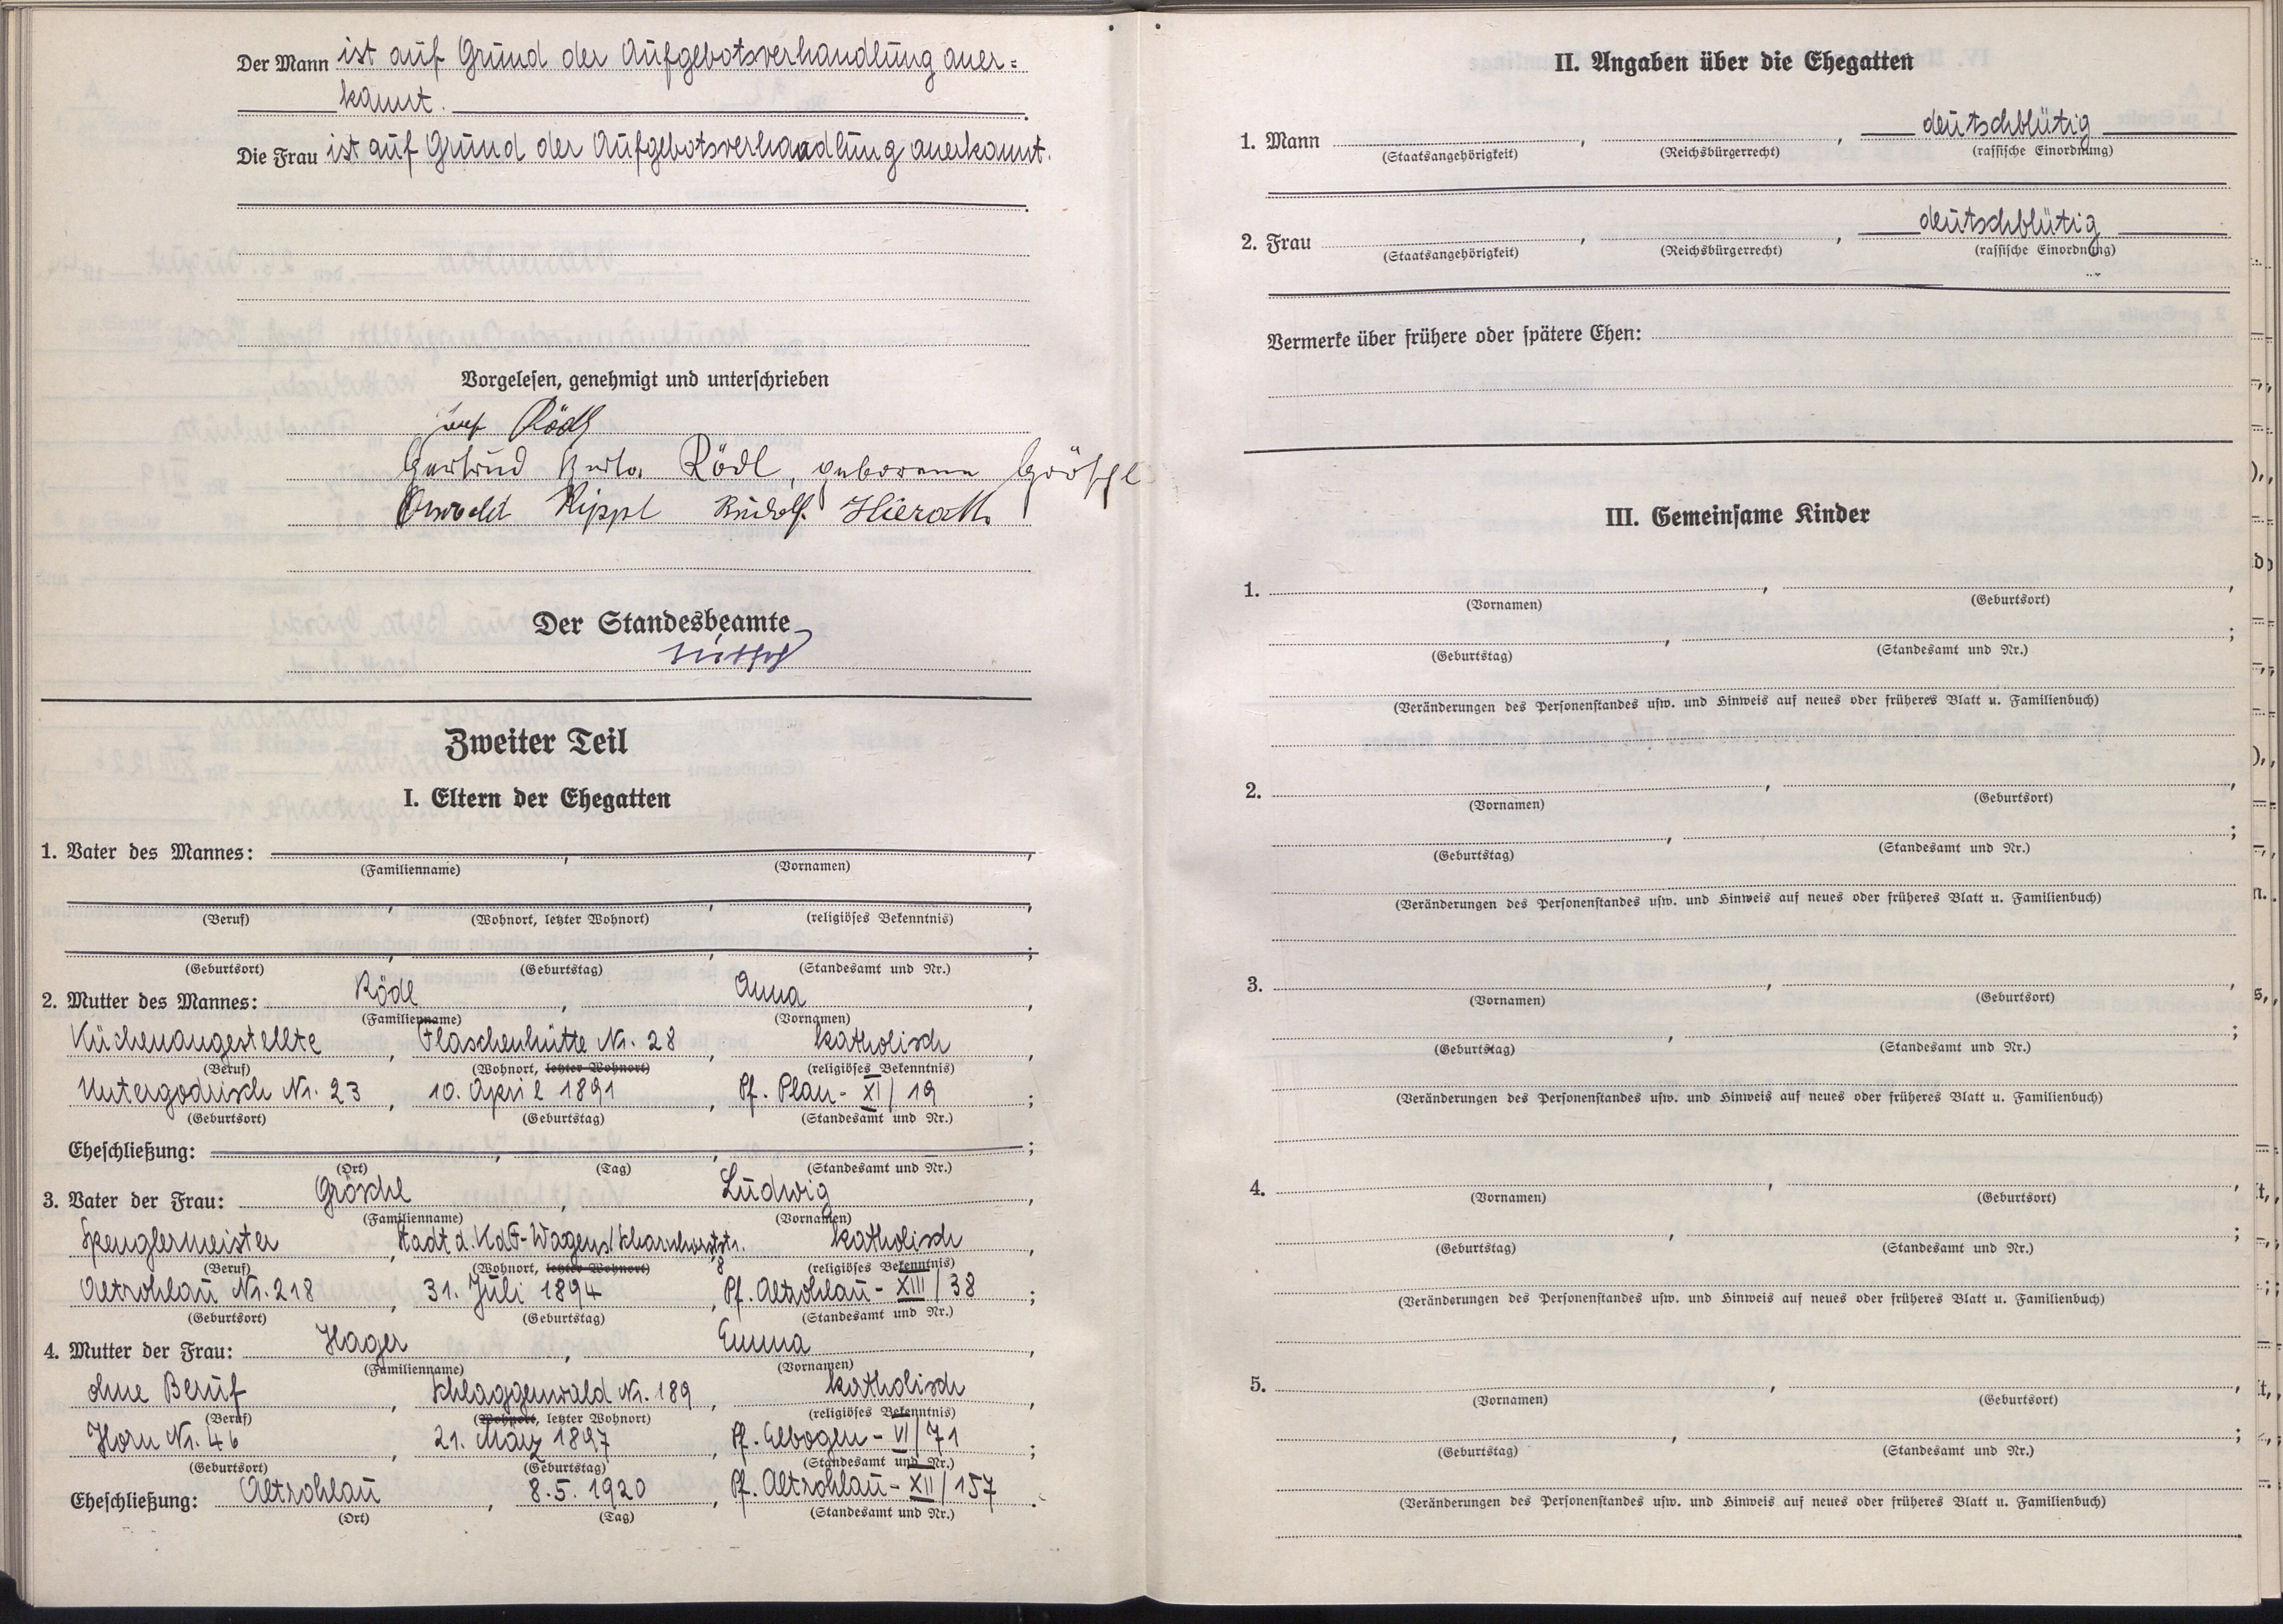 Der Mann ist auf Grund der Aufgebotsverhandlung aner=
kannt.
Die Frau ist auf Grund der Aufgebotsverhandlung anerkannt.
Vorgelesen, genehmigt und unterschrieben
Josef Rödl
Gertrud Berta Rödl, geborene Gröschl
Oswald Kippl Rudolf Hierath
Der Standesbeamte
Zweiter Teil
I. Eltern der Ehegatten
1. Vater des Mannes:
(Familienname) (Vornamen)
(Beruf) (Wohnort, letzter Wohnort) (religiöses Bekenntnis)
(Geburtsort) (Geburtstag) (Standesamt und Nr.)
2. Mutter des Mannes: Rödl, Anna,
(Familienname) (Vornamen)
Küchenangestellte, Flaschenhütte Nr. 28, katholisch,
(Beruf) (Wohnort, letzter Wohnort) (religiöses Bekenntnis)
Untergodrisch Nr. 23, 10. April 1891, Pf. Plan - XI/19;
(Geburtsort) (Geburtstag) (Standesamt und Nr.)
Eheschließung:
(Ort) (Tag) (Standesamt und Nr.)
3. Vater der Frau: Gröschl, Ludwig,
(Familienname) (Vornamen)
Spenglermeister, Stadt d. KdF-Wagens, Scharnhorststr. 8, katholisch,
(Beruf) (Wohnort, letzter Wohnort) (religiöses Bekenntnis)
Altrohlau Nr. 218, 31. Juli 1894, Pf. Altrohlau - XIII/38;
(Geburtsort) (Geburtstag) (Standesamt und Nr.)
4. Mutter der Frau: Hager, Emma,
(Familienname) (Vornamen)
ohne Beruf, Schlaggenwald Nr. 189, katholisch,
(Beruf) (Wohnort, letzter Wohnort) (religiöses Bekenntnis)
Horn Nr. 46, 21. März 1897, Pf. Elbogen - VI/71;
(Geburtsort) (Geburtstag) (Standesamt und Nr.)
Eheschließung: Altrohlau, 8.5.1920, Pf. Altrohlau - XII/157.
(Ort) (Tag) (Standesamt und Nr.)
II. Angaben über die Ehegatten
1. Mann , , deutschblütig
(Staatsangehörigkeit) (Reichsbürgerrecht) (rassische Einordnung)
2. Frau , , deutschblütig
(Staatsangehörigkeit) (Reichsbürgerrecht) (rassische Einordnung)
Vermerke über frühere oder spätere Ehen:
III. Gemeinsame Kinder
1.
(Vornamen) (Geburtsort)
(Geburtstag) (Standesamt und Nr.)
(Veränderungen des Personenstandes usw. und Hinweis auf neues oder früheres Blatt u. Familienbuch)
2.
(Vornamen) (Geburtsort)
(Geburtstag) (Standesamt und Nr.)
(Veränderungen des Personenstandes usw. und Hinweis auf neues oder früheres Blatt u. Familienbuch)
3.
(Vornamen) (Geburtsort)
(Geburtstag) (Standesamt und Nr.)
(Veränderungen des Personenstandes usw. und Hinweis auf neues oder früheres Blatt u. Familienbuch)
4.
(Vornamen) (Geburtsort)
(Geburtstag) (Standesamt und Nr.)
(Veränderungen des Personenstandes usw. und Hinweis auf neues oder früheres Blatt u. Familienbuch)
5.
(Vornamen) (Geburtsort)
(Geburtstag) (Standesamt und Nr.)
(Veränderungen des Personenstandes usw. und Hinweis auf neues oder früheres Blatt u. Familienbuch)